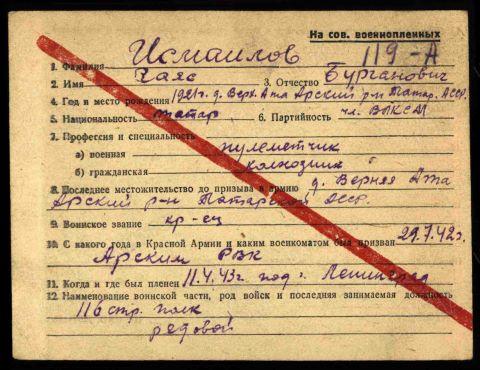 На сов. военнопленных
119-А
1. Фамилия Исмаилов
2. Имя Гаяс 3. Отчество Бурганович
4. Год и место рождения 1921г. д. Верх. Ата Арский р-н Татар. АССР.
5. Национальность татар 6. Партийность чл. ВЛКСМ
7. Профессия и специальность
а) военная пулеметчик
б) гражданская колхозник
8. Последнее местожительство до призыва в армию д. Верняя Ата
Арский р-н Татарской АССР.
9. Воинское звание кр-ец
10. С какого года в Красной Армии и каким военкоматом был призван 29.7.42г.
Арским РВК
11. Когда и где был пленен 11.4.43г. под г. Ленинград
12. Наименование воинской части, род войск и последняя занимаемая должность
116 стр. полк
редовой